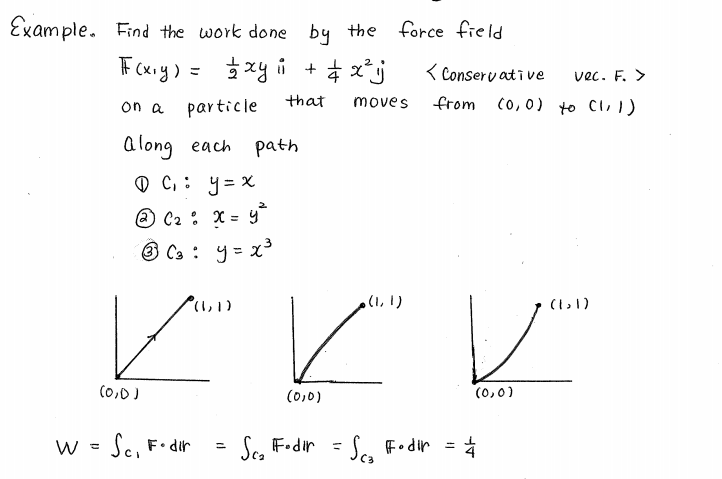 Example. Find the work done by the force field
𝔽(x,y) = ½xy 𝕚 + ¼x²𝕛 < Conservative vec. F. >
on a particle that moves from (0,0) to (1,1)
along each path
① C₁ : y = x
② C₂ : x = y²
③ C₃ : y = x³
(1,1) (1,1) (1,1)
(0,0) (0,0) (0,0)
W = ∫C₁ 𝔽·d𝕣 = ∫C₂ 𝔽·d𝕣 = ∫C₃ 𝔽·d𝕣 = ¼